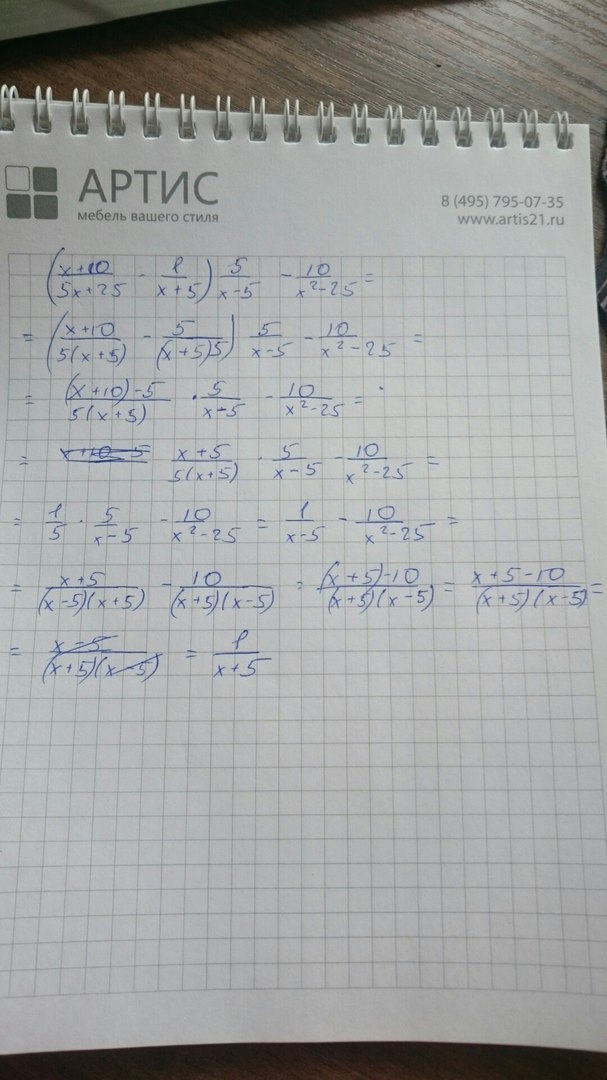 АРТИС
мебель вашего стиля
8 (495) 795-07-35
www.artis21.ru
((x+10)/(5x+25) - 1/(x+5)) 5/(x-5) - 10/(x²-25) =
= ((x+10)/(5(x+5)) - 5/((x+5)5)) 5/(x-5) - 10/(x²-25) =
= ((x+10)-5)/(5(x+5)) · 5/(x+5) - 10/(x²-25) =
= x+10-5 (x+5)/(5(x+5)) · 5/(x-5) - 10/(x²-25) =
= 1/5 · 5/(x-5) - 10/(x²-25) = 1/(x-5) - 10/(x²-25) =
= (x+5)/((x-5)(x+5)) - 10/((x+5)(x-5)) = ((x+5)-10)/((x+5)(x-5)) = (x+5-10)/((x+5)(x-5)) =
= (x-5)/((x+5)(x-5)) = 1/(x+5)